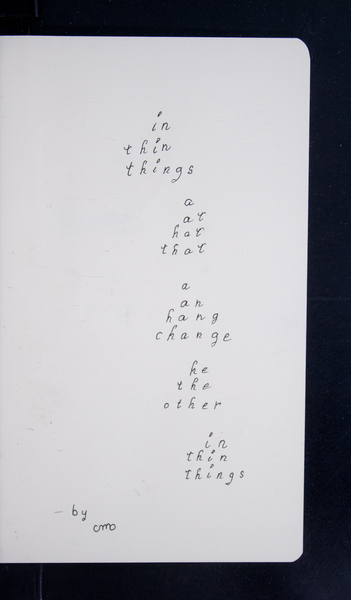 in
thin
things
a
at
hat
that
a
an
hang
change
he
the
other
in
thin
things
- by
cmo